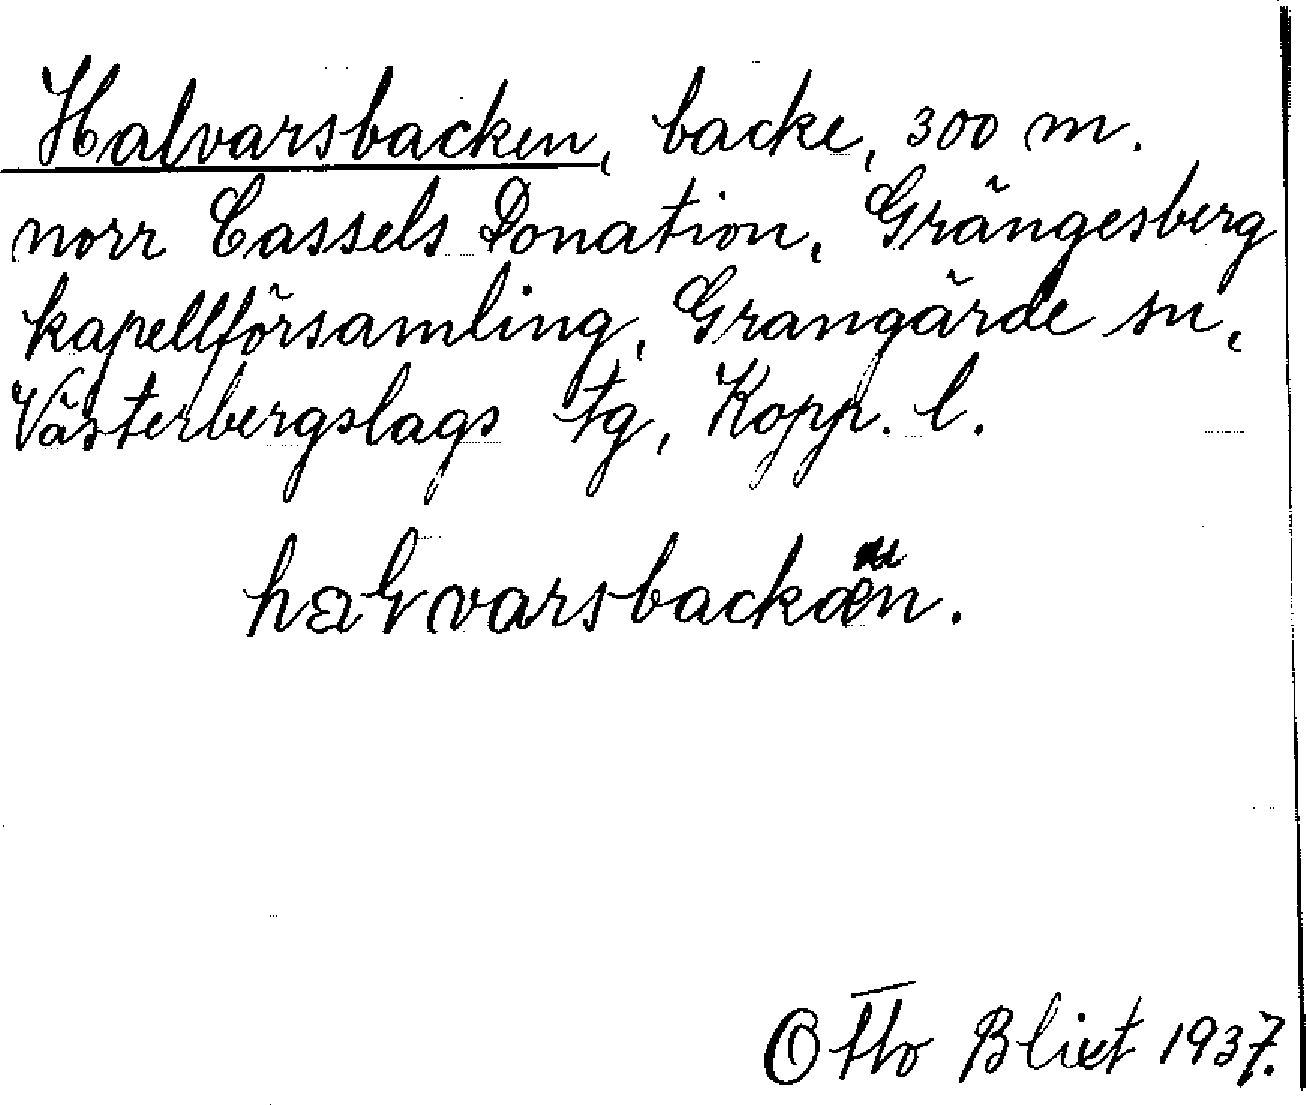 Halvarsbacken, backe, 300 m.
norr Cassels Donation, Grängesberg
kapellförsamling, Grangärde sn,
Västerbergslags tg, Kopp. l.
Otto Blixt 1937.